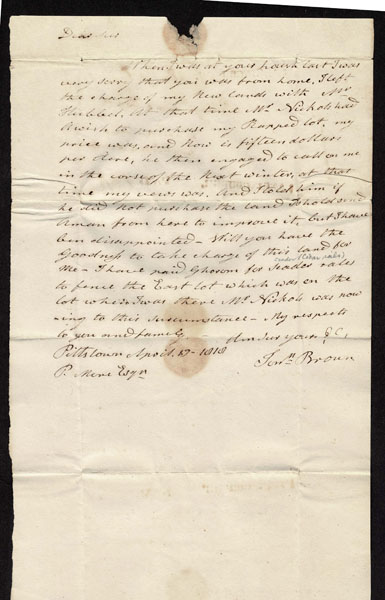 Dear Sir
When I was at your house last I was
very sorry that you was from home, I left
the charge of my New lands with Mr
Hubbel. At that time Mr. Nichols had
a wish to purchase my lot, my
price was, and Now is fifteen dollars
per Acre, he then engaged to call on me
in the corse of the Next winter, at that
time my views was, and I told him if
he did not purchase the land I should send
a man from here to improve it, but I have
ben disappointed - Will you have the
Goodness to take charge of this land for
me - I have paid for Seador rales
to fence the East lot which was on the
lot when I was there Mr. Nichols was now
ing to this Sircumstance - My respects
to you and family
Am Sir yours &C,
Pittstown April 17 - 1818
Brown
P. Mere Esqr